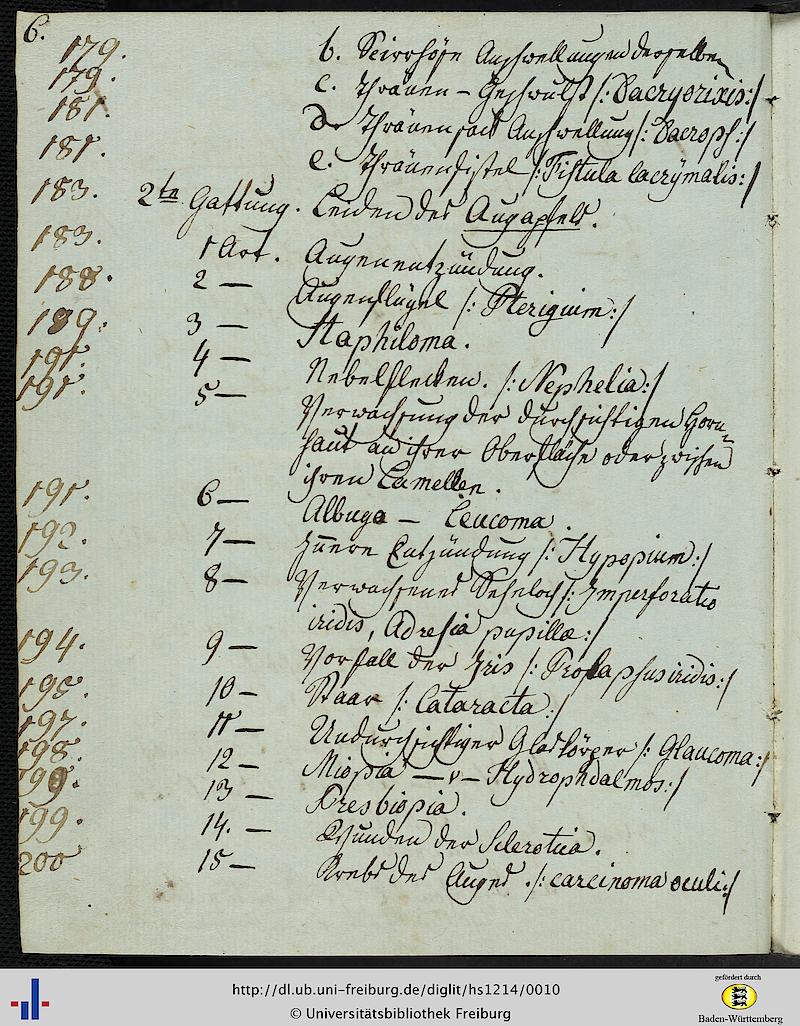 6.
179. b. Scirrhöse Anschwellungen derselben
179. c. Thränen-Geschwulst /: Dacryorixis :/
181. d. Thränensack Anschwellung /: Dacrops :/
181. e. Thränenfistel /: Fistula lacrÿmalis: /
183. 2te Gattung. Leiden des Augapfels.
183. 1 Art. Augenentzündung.
188. 2 — Augenflügel /: Pterigium: /
189. 3 — Staphiloma.
191. 4 — Nebelflecken. /: Nephelia: /
191. 5 — Verwachsung der durchsichtigen Horn-
haut an ihrer Oberfläche oder zwischen
ihren Lamellen.
191. 6 — Albugo — Leucoma.
192. 7 — Innere Entzündung /: Hypopium: /
193. 8 — Verwachsenes Seheloch /: Imperforatio
iridis, Adresia pupillæ: /
194. 9 — Vorfall der Iris /: Prolapsus iridis: /
195. 10 — Staar /: Cataracta: /
197. 11 — Undurchsichtiger Glaskörper /: Glaucoma: /
198. 12 — Miopia — v — Hydrophdalmos: /
199. 13 — Presbiopia.
199. 14. — Wunden der Sclerotica.
200 15 — Krebs des Auges. /: carcinoma oculi: /
http://dl.ub.uni-freiburg.de/diglit/hs1214/0010
© Universitätsbibliothek Freiburg
gefördert durch
Baden-Württemberg